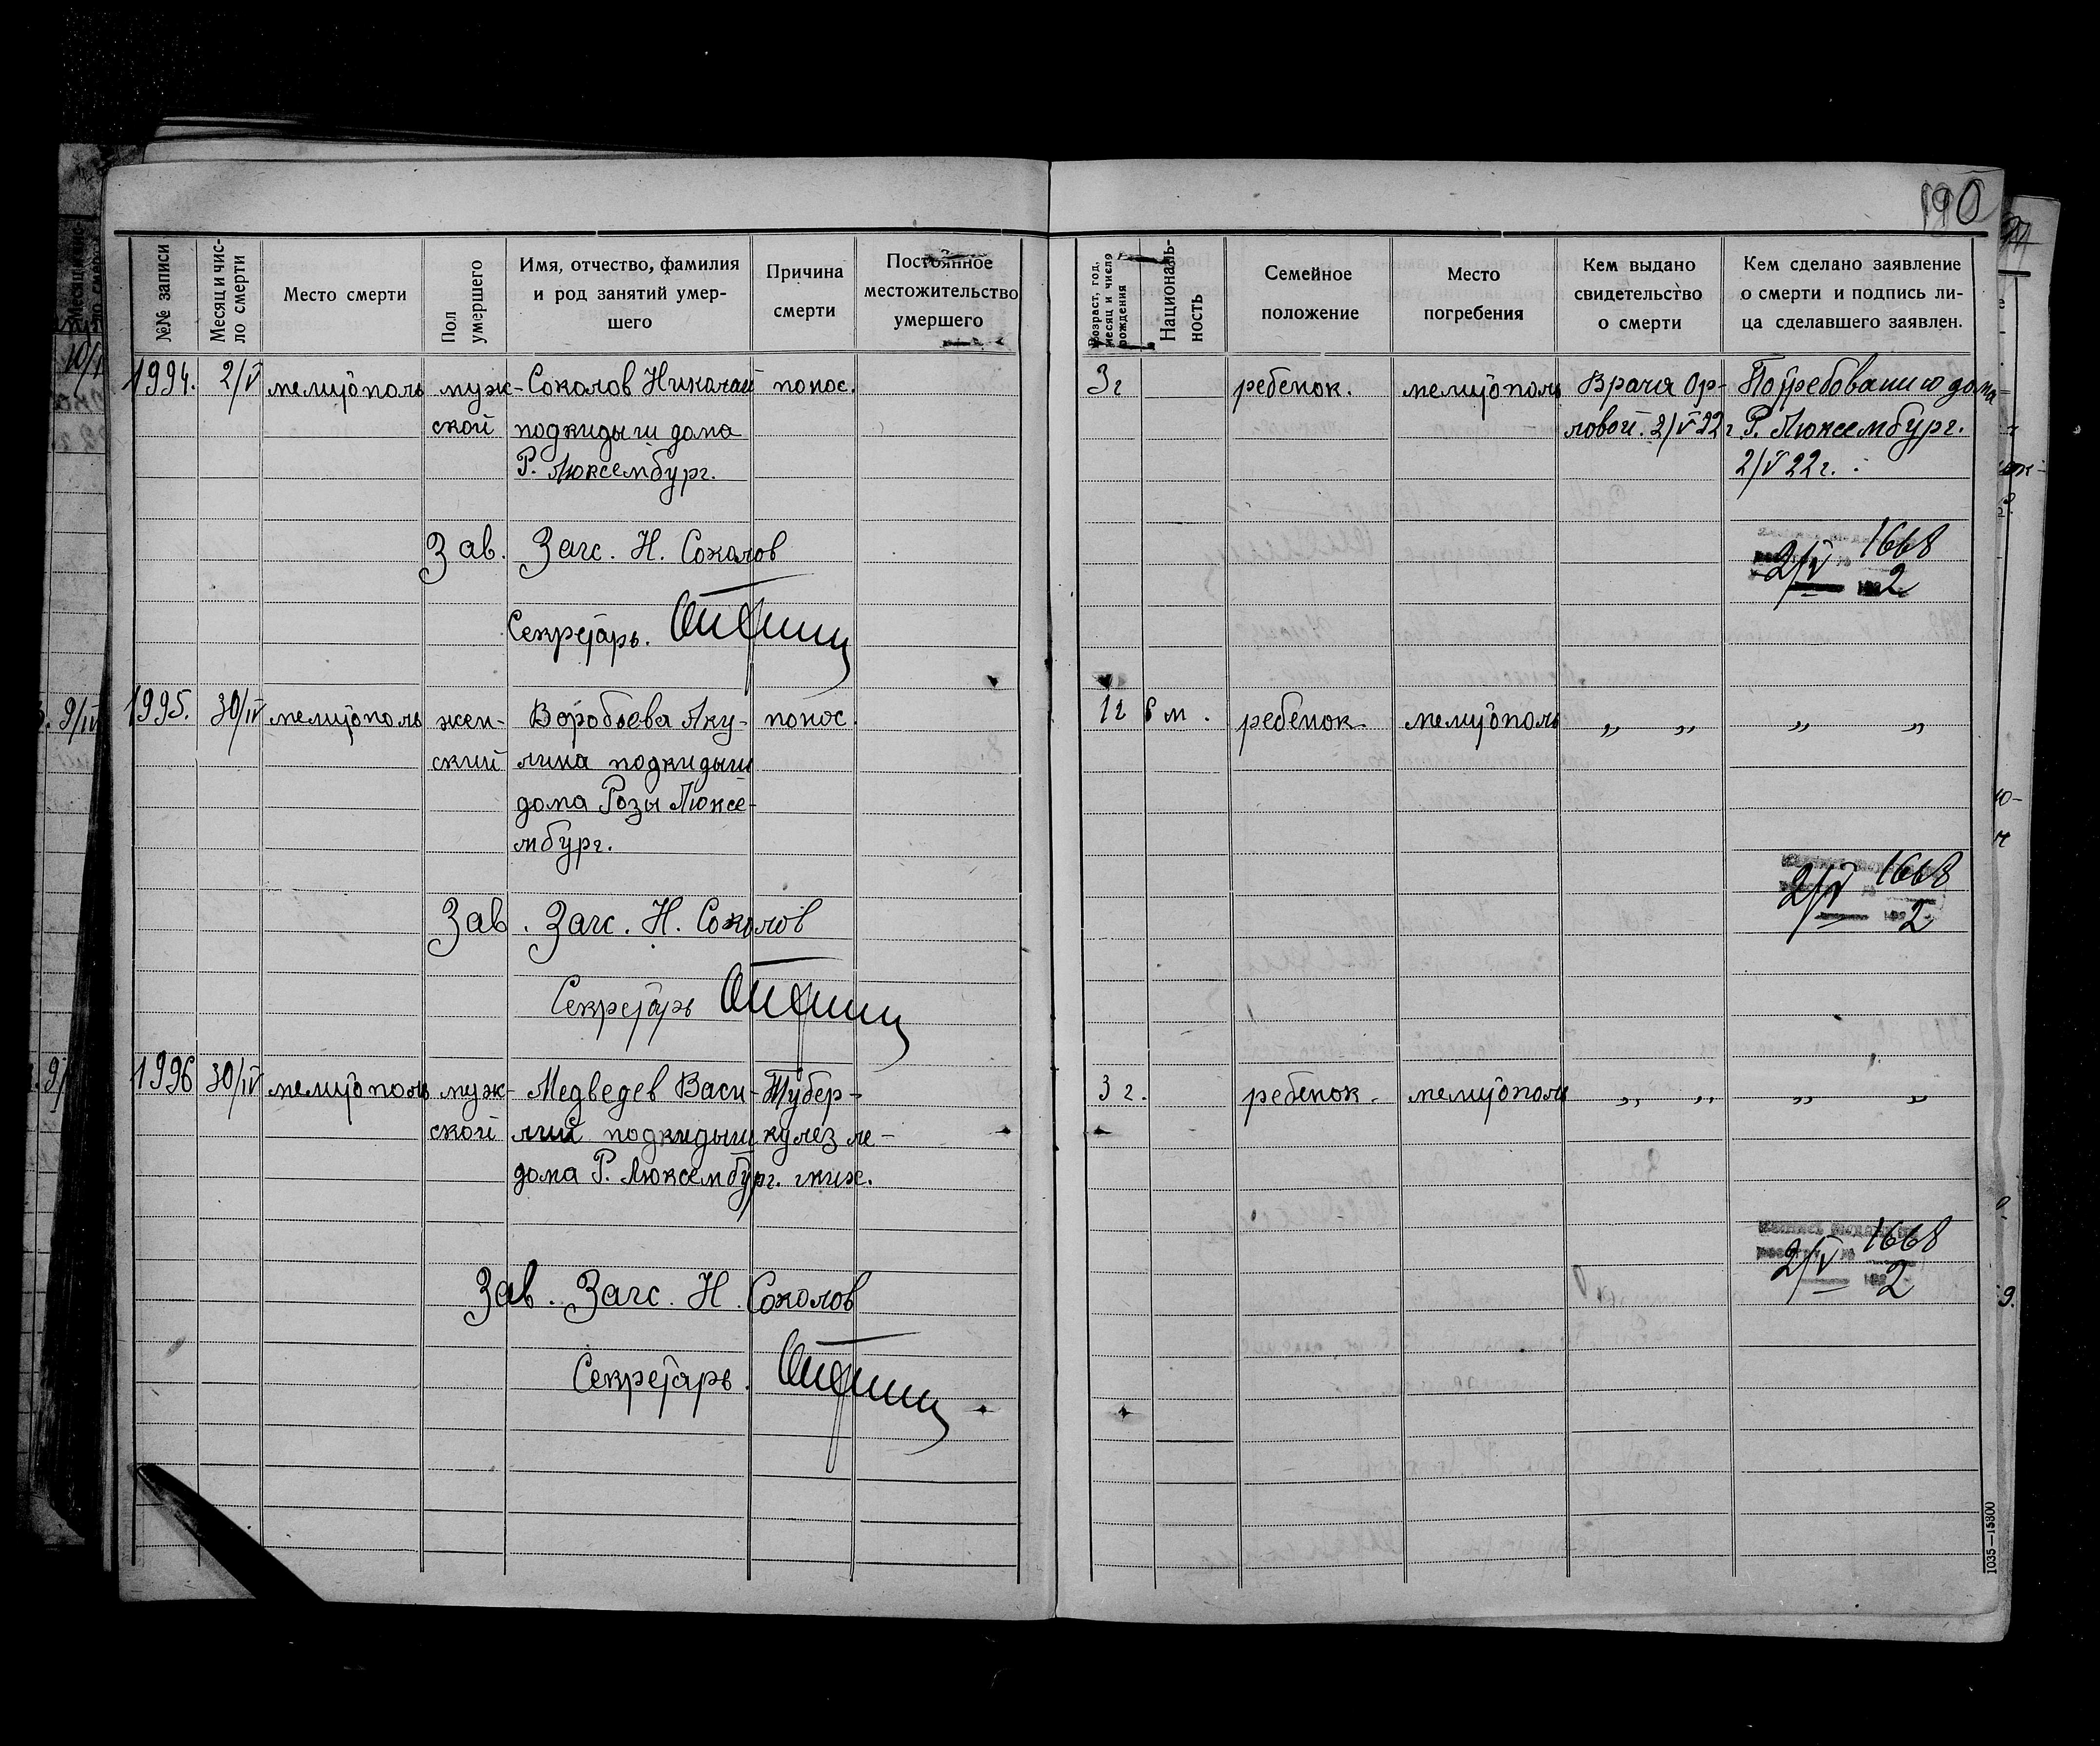 190
№№ записи
Месяц и чис-
ло смерти
Место смерти
Пол
умершего
Имя, отчество, фамилия
и род занятий умер-
шего
Причина
смерти
Постоянное
местожительство
умершего
Возраст, год,
месяц и число
рождения
Националь-
ность
Семейное
положение
Место
погребения
Кем выдано
свидетельство
о смерти
Кем сделано заявление
о смерти и подпись ли-
ца сделавшего заявлен.
1994. 2/V мелитополь муж- Соколов Николай понос. 3 г ребенок. мелитополь Врача Ор- По требованию дома
ской подкидыш дома ловой. 2/V 22 г Р. Люксембург.
Р. Люксембург. 2/V 22 г.
Зав. Загс. Н. Соколов
1668
2/V 1922
Секретарь.
1995. 30/IV мелитополь жен- Воробьева Аку- понос. 1 г 6 м. ребенок. мелитополь „ „ „ „
ский лина подкидыш
дома Розы Люксе-
мбург.
1668
2/V 1922
Зав. Загс. Н. Соколов
Секретарь
1996 30/IV мелитополь муж- Медведев Васи- Тубер- 3 г. ребенок. мелитополь „ „ „ „
ской лий подкидыш кулез ле-
дома Р. Люксембург. гких.
1668
2/V 1922
Зав. Загс. Н. Соколов
Секретарь.
1035—15300